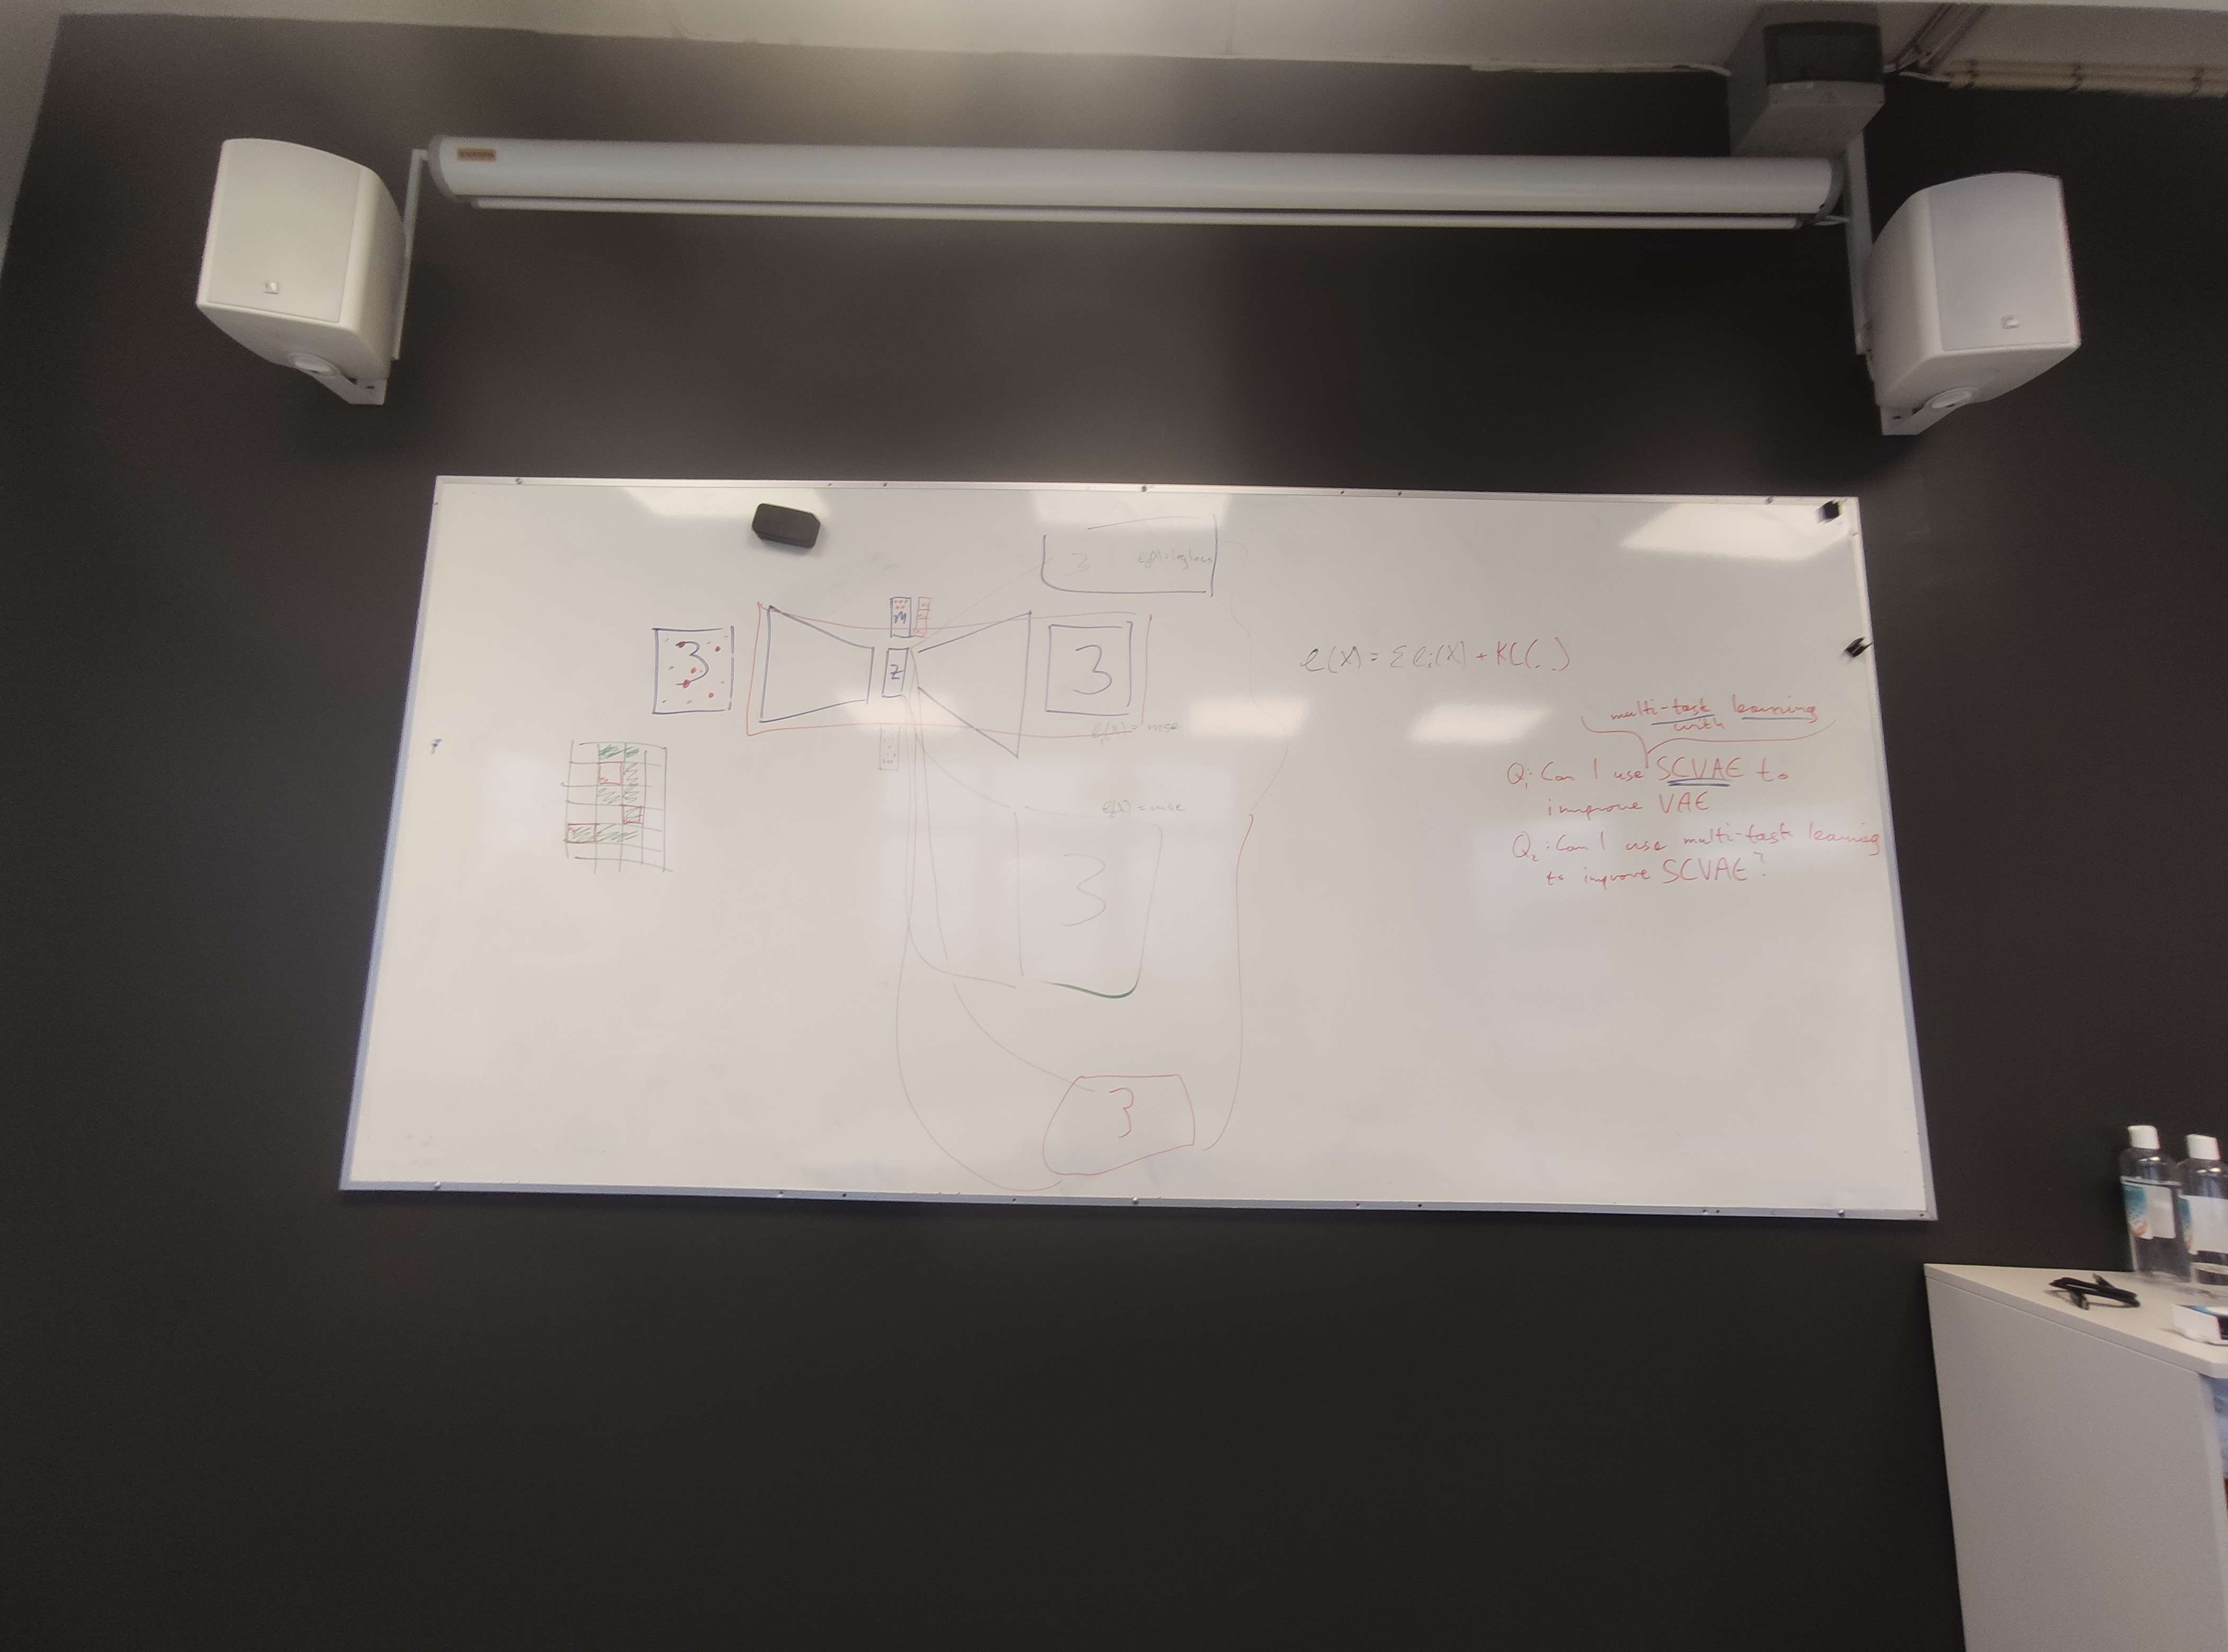 3
3
m
z
3
3
l₁(x) = mse
l(x) = mse
3
3
l(x) = Σ lᵢ(x) + KL(. .)
multi-task learning
with
Q₁: Can I use SCVAE to
improve VAE
Q₂: Can I use multi-task learning
to improve SCVAE?